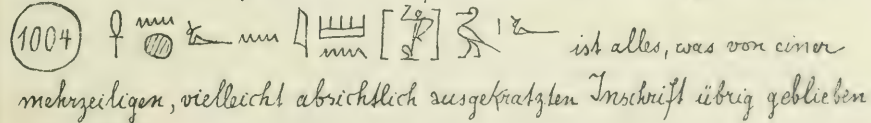 1004 𓋹𓈖𓐍𓆑𓈖𓇋𓏠𓈖 [ ] 𓅭𓏤𓆑 ist alles, was von einer
mehrzeiligen, vielleicht absichtlich ausgekratzten Inschrift übrig geblieben